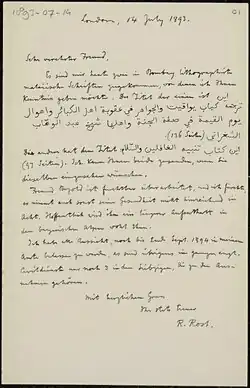 1893-07-14
01
London, 14 July 1893.
Sehr verehrter Freund,
Es sind mir heute zwei in Bombay lithographirte
malaiische Schriften zugekommen, von denen ich Ihnen
Kenntniss geben möchte. Der Titel der einen ist این
ترجمة كتاب يواقيت والجواهر في عقوبة اهل الكبائر واحوال
يوم القيمة في صفة الجنة واهلها شيخ عبد الوهاب
الشعراني (136 Seiten).
Die andere hat den Titel این كتاب تنبيه الغافلين والسلام
(97 Seiten). Ich kann Ihnen beide zusenden, wenn Sie
dieselben einzusehen wünschen.
Freund Bezold ist furchtbar überarbeitet, und ich fürchte,
er nimmt auch sonst seine Gesundheit nicht hinreichend in
Acht. Hoffentlich wird ihm ein längerer Aufenthalt in
den bayrischen Alpen wohl thun.
Ich habe Aussicht, noch bis Ende Sept. 1894 in meinem
Amte belassen zu werden, es sind übrigens im ganzen engl.
Civildienst nur noch 2 in den Siebzigen, die zu den Aus-
nahmen gehören.
Mit herzlichem Gruss
Ihr stets treuer
R. Rost.